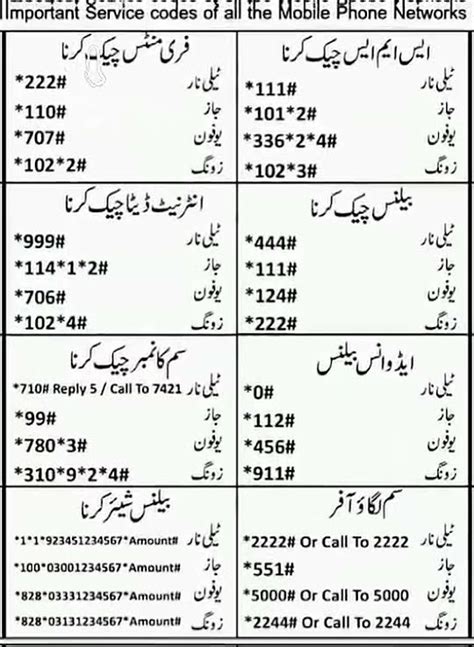 Important Service codes of all the Mobile Phone Networks
ایس ایم ایس چیک کرنا
ٹیلی نار *111#
جاز *101*2#
یوفون *336*2*4#
زونگ *102*3#
فری منٹس چیک کرنا
ٹیلی نار *222#
جاز *110#
یوفون *707#
زونگ *102*2#
بیلنس چیک کرنا
ٹیلی نار *444#
جاز *111#
یوفون *124#
زونگ *222#
انٹرنیٹ ڈیٹا چیک کرنا
ٹیلی نار *999#
جاز *114*1*2#
یوفون *706#
زونگ *102*4#
ایڈوانس بیلنس
ٹیلی نار *0#
جاز *112#
یوفون *456#
زونگ *911#
سم کا نمبر چیک کرنا
ٹیلی نار *710# Reply 5 / Call To 7421
جاز *99#
یوفون *780*3#
زونگ *310*9*2*4#
سم لگاؤ آفر
ٹیلی نار *2222# Or Call To 2222
جاز *551#
یوفون *5000# Or Call To 5000
زونگ *2244# Or Call To 2244
بیلنس شیئر کرنا
ٹیلی نار *1*1*923451234567*Amount#
جاز *100*03001234567*Amount#
یوفون *828*03331234567*Amount#
زونگ *828*03131234567*Amount#